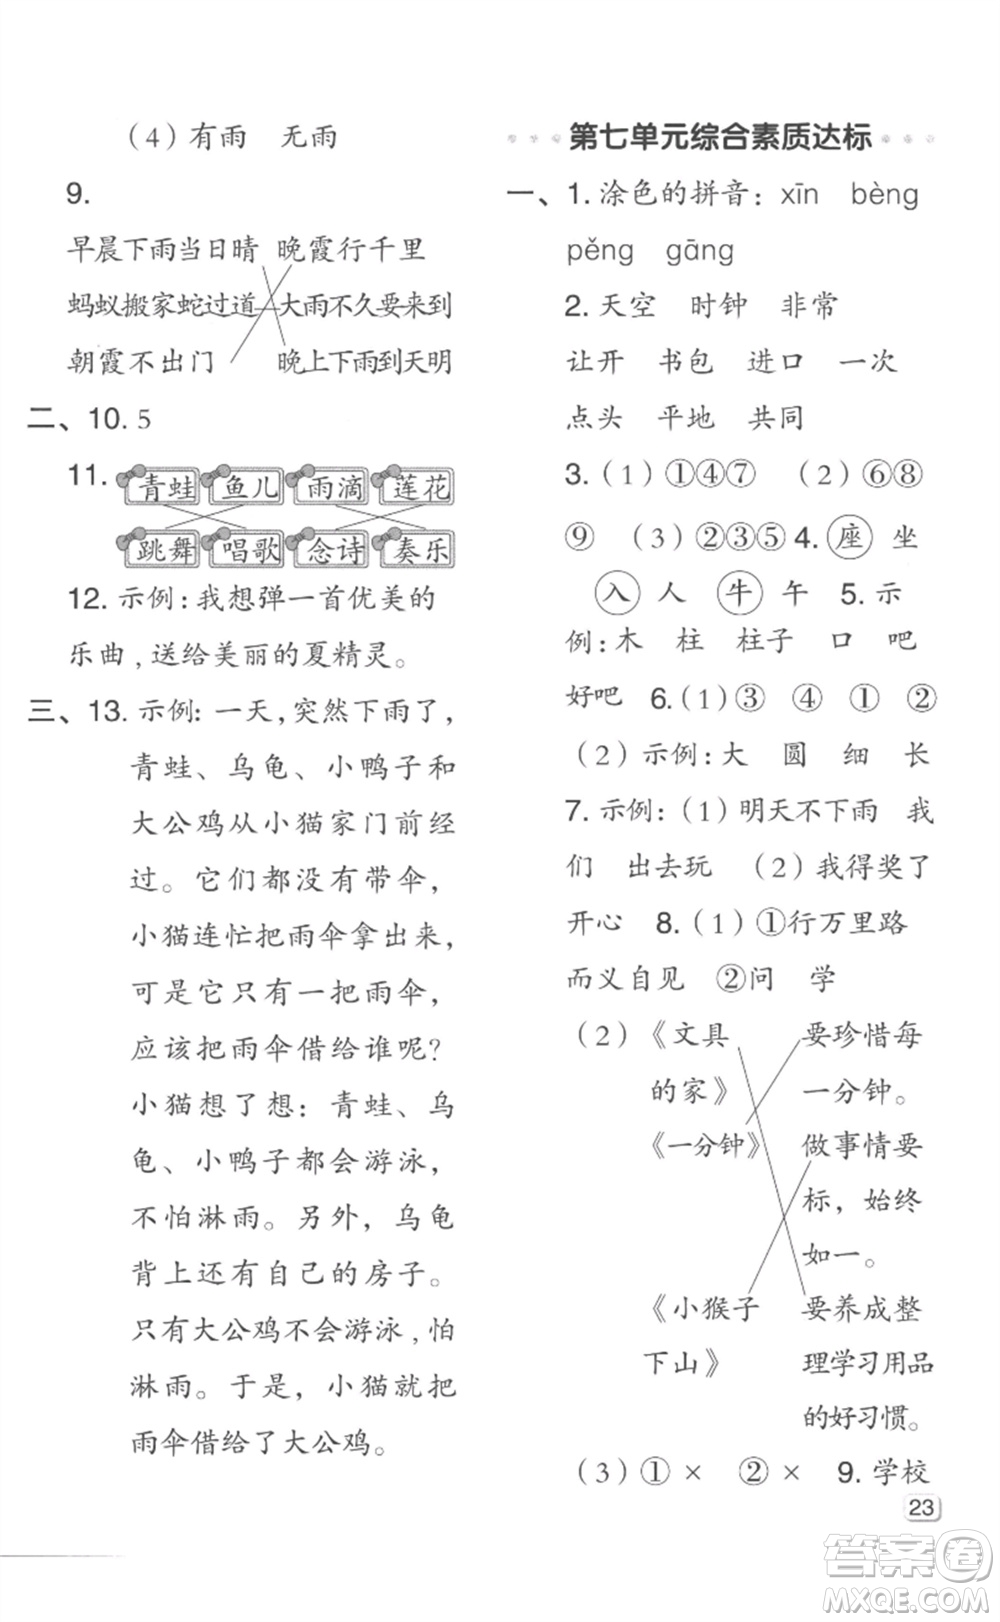 （4）有雨 无雨
9.
早晨下雨当日晴 晚霞行千里
蚂蚁搬家蛇过道 大雨不久要来到
朝霞不出门 晚上下雨到天明
二、10. 5
11. 青蛙 鱼儿 雨滴 莲花
跳舞 唱歌 念诗 奏乐
12. 示例：我想弹一首优美的
乐曲，送给美丽的夏精灵。
三、13. 示例：一天，突然下雨了，
青蛙、乌龟、小鸭子和
大公鸡从小猫家门前经
过。它们都没有带伞，
小猫连忙把雨伞拿出来，
可是它只有一把雨伞，
应该把雨伞借给谁呢？
小猫想了想：青蛙、乌
龟、小鸭子都会游泳，
不怕淋雨。另外，乌龟
背上还有自己的房子。
只有大公鸡不会游泳，怕
淋雨。于是，小猫就把
雨伞借给了大公鸡。
第七单元综合素质达标
一、1. 涂色的拼音：xīn bèng
pěng gāng
2. 天空 时钟 非常
让开 书包 进口 一次
点头 平地 共同
3.（1）①④⑦ （2）⑥⑧
⑨ （3）②③⑤ 4. 座 坐
入 人 牛 午 5. 示
例：木 柱 柱子 口 吧
好吧 6.（1）③ ④ ① ②
（2）示例：大 圆 细 长
7. 示例：（1）明天不下雨 我
们 出去玩 （2）我得奖了
开心 8.（1）①行万里路
而义自见 ②问 学
（2）《文具 要珍惜每
的家》 一分钟。
《一分钟》 做事情要
标，始终
如一。
《小猴子 要养成整
下山》 理学习用品
的好习惯。
（3）① × ② × 9. 学校
23
答案卷
MXQE.COM